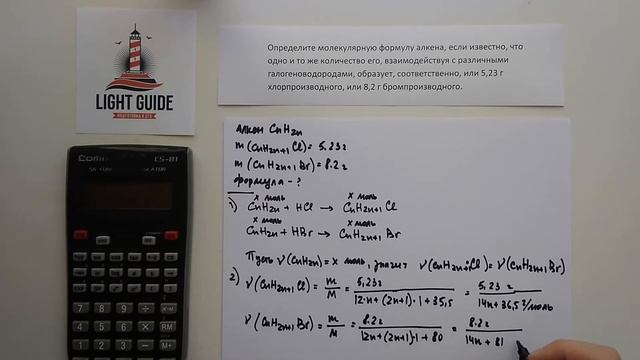 LIGHT GUIDE
ПОДГОТОВКА К ЕГЭ
Определите молекулярную формулу алкена, если известно, что
одно и то же количество его, взаимодействуя с различными
галогеноводородами, образует, соответственно, или 5,23 г
хлорпроизводного, или 8,2 г бромпроизводного.
алкен CnH2n
m(CnH2n+1 Cl) = 5.23г
m(CnH2n+1 Br) = 8.2г
формула - ?
x моль x моль
1) CnH2n + HCl → CnH2n+1 Cl
x моль x моль
CnH2n + HBr → CnH2n+1 Br
Пусть ν(CnH2n) = x моль, значит ν(CnH2n+1Cl) = ν(CnH2n+1Br)
2) ν(CnH2n+1 Cl) = m/M = 5.23г/12·n+(2n+1)·1+35,5 = 5.23 г/14n+36,5 г/моль
ν(CnH2n+1 Br) = m/M = 8.2г/12n+(2n+1)·1+80 = 8.2г/14n+81
CS-81
7 8 9
4 5 6 RM
1 2 3 M-